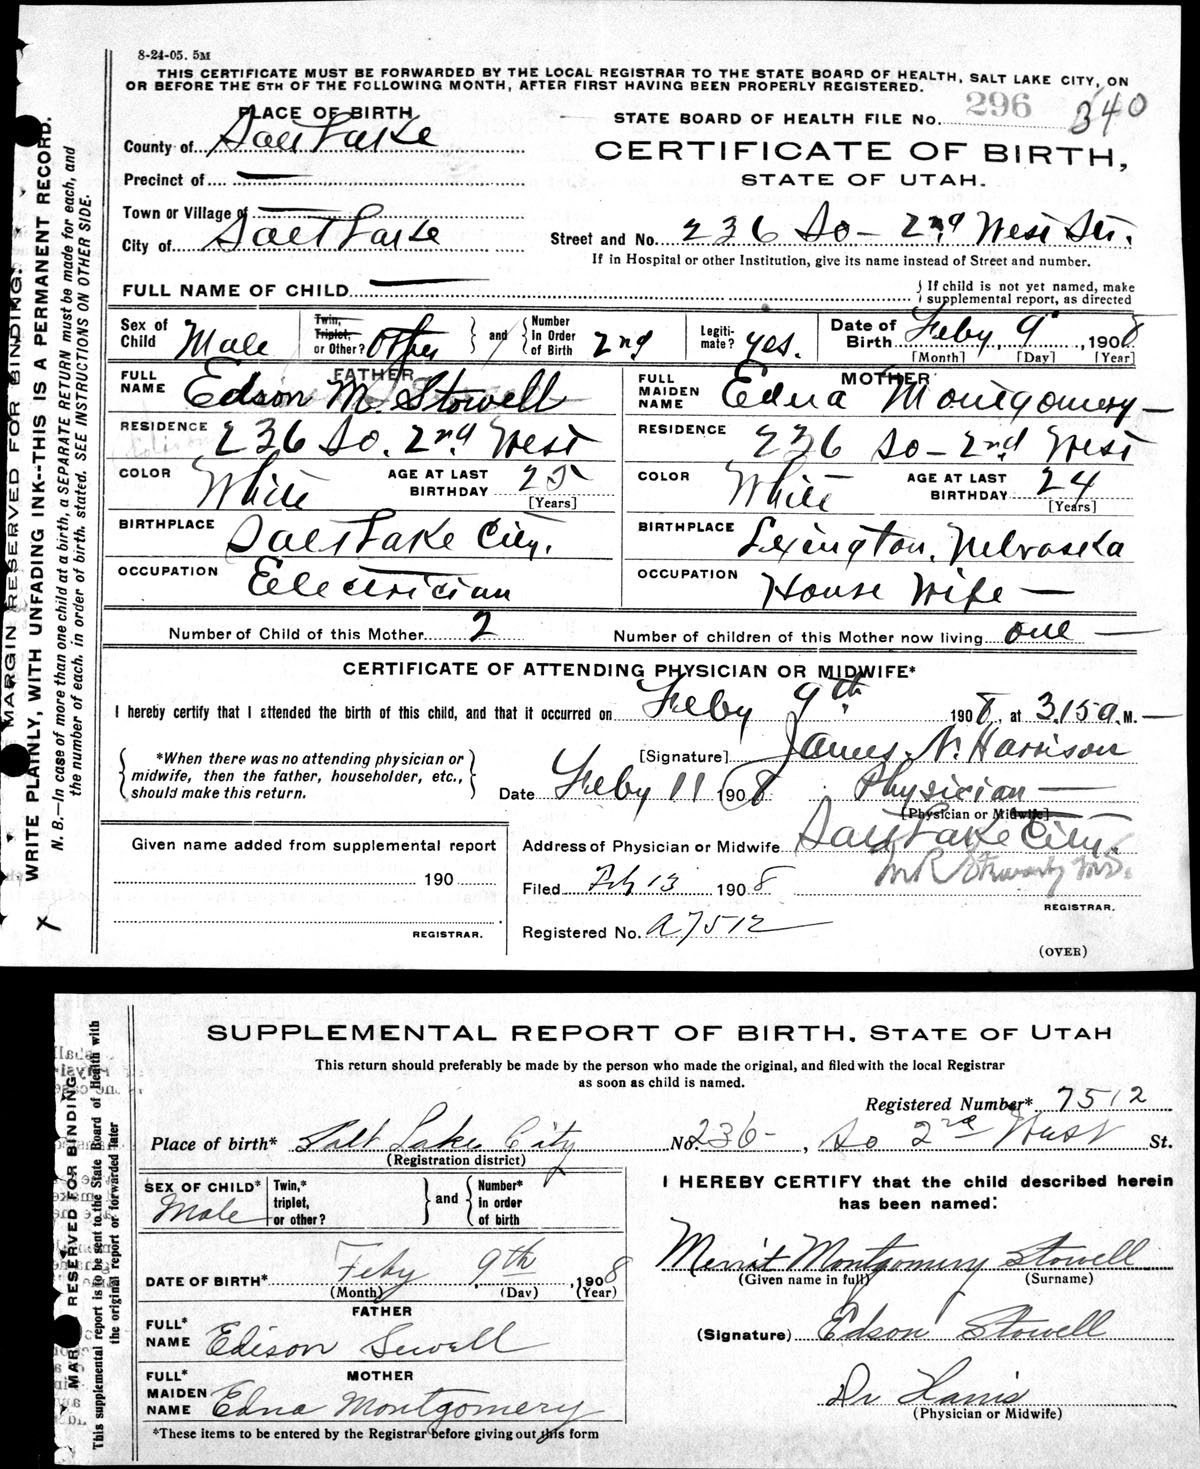 8-24-05. 5M
THIS CERTIFICATE MUST BE FORWARDED BY THE LOCAL REGISTRAR TO THE STATE BOARD OF HEALTH, SALT LAKE CITY, ON
OR BEFORE THE 5TH OF THE FOLLOWING MONTH, AFTER FIRST HAVING BEEN PROPERLY REGISTERED.
PLACE OF BIRTH
STATE BOARD OF HEALTH FILE No. 296 340
County of Salt Lake
CERTIFICATE OF BIRTH,
Precinct of —
STATE OF UTAH.
Town or Village of —
City of Salt Lake
Street and No. 236 So – 2nd West Str.
If in Hospital or other Institution, give its name instead of Street and number.
FULL NAME OF CHILD —
If child is not yet named, make
supplemental report, as directed
Sex of Child Male
Twin, Triplet, or Other? Other
and Number in Order of Birth 2nd
Legitimate? yes.
Date of Birth Feby. 9", 1908
[Month] [Day] [Year]
FATHER
FULL NAME Edson M. Stowell
MOTHER
FULL MAIDEN NAME Edna Montgomery –
RESIDENCE 236 So. 2nd West
RESIDENCE 236 So – 2nd West
COLOR White AGE AT LAST BIRTHDAY 25 [Years]
COLOR White AGE AT LAST BIRTHDAY 24 [Years]
BIRTHPLACE Salt Lake City.
BIRTHPLACE Lexington, Nebraska
OCCUPATION Electrician
OCCUPATION House Wife –
Number of Child of this Mother 2
Number of children of this Mother now living one –
CERTIFICATE OF ATTENDING PHYSICIAN OR MIDWIFE*
I hereby certify that I attended the birth of this child, and that it occurred on Feby 9th. 1908, at 3.15 a. M. –
*When there was no attending physician or
midwife, then the father, householder, etc.,
should make this return.
[Signature] James N. Harrison
Date Feby 11 1908 Physician –
[Physician or Midwife]
Address of Physician or Midwife Salt Lake City.
Given name added from supplemental report
190
REGISTRAR.
Filed Feb 13 1908
M R Stewart M.D.
REGISTRAR.
Registered No. A7512
(OVER)
MARGIN RESERVED FOR BINDING.
WRITE PLAINLY, WITH UNFADING INK--THIS IS A PERMANENT RECORD.
N. B.—In case of more than one child at a birth, a SEPARATE RETURN must be made for each, and
the number of each, in order of birth, stated. SEE INSTRUCTIONS ON OTHER SIDE.
X
SUPPLEMENTAL REPORT OF BIRTH, STATE OF UTAH
This return should preferably be made by the person who made the original, and filed with the local Registrar
as soon as child is named.
Registered Number* 7512
Place of birth* Salt Lake City No. 236 – , So 2nd West St.
(Registration district)
SEX OF CHILD* Male
Twin,* triplet, or other?
and Number* in order of birth
I HEREBY CERTIFY that the child described herein
has been named:
Merrit Montgomery Stowell
(Given name in full) (Surname)
DATE OF BIRTH* Feby 9th, 1908
(Month) (Day) (Year)
FATHER
FULL* NAME Edison Sewell
(Signature) Edson Stowell
MOTHER
FULL* MAIDEN NAME Edna Montgomery
Dr Harris
(Physician or Midwife)
*These items to be entered by the Registrar before giving out this form
MAR RESERVED FOR BINDING
This supplemental report is to be sent to the State Board of Health with
the original report or forwarded later